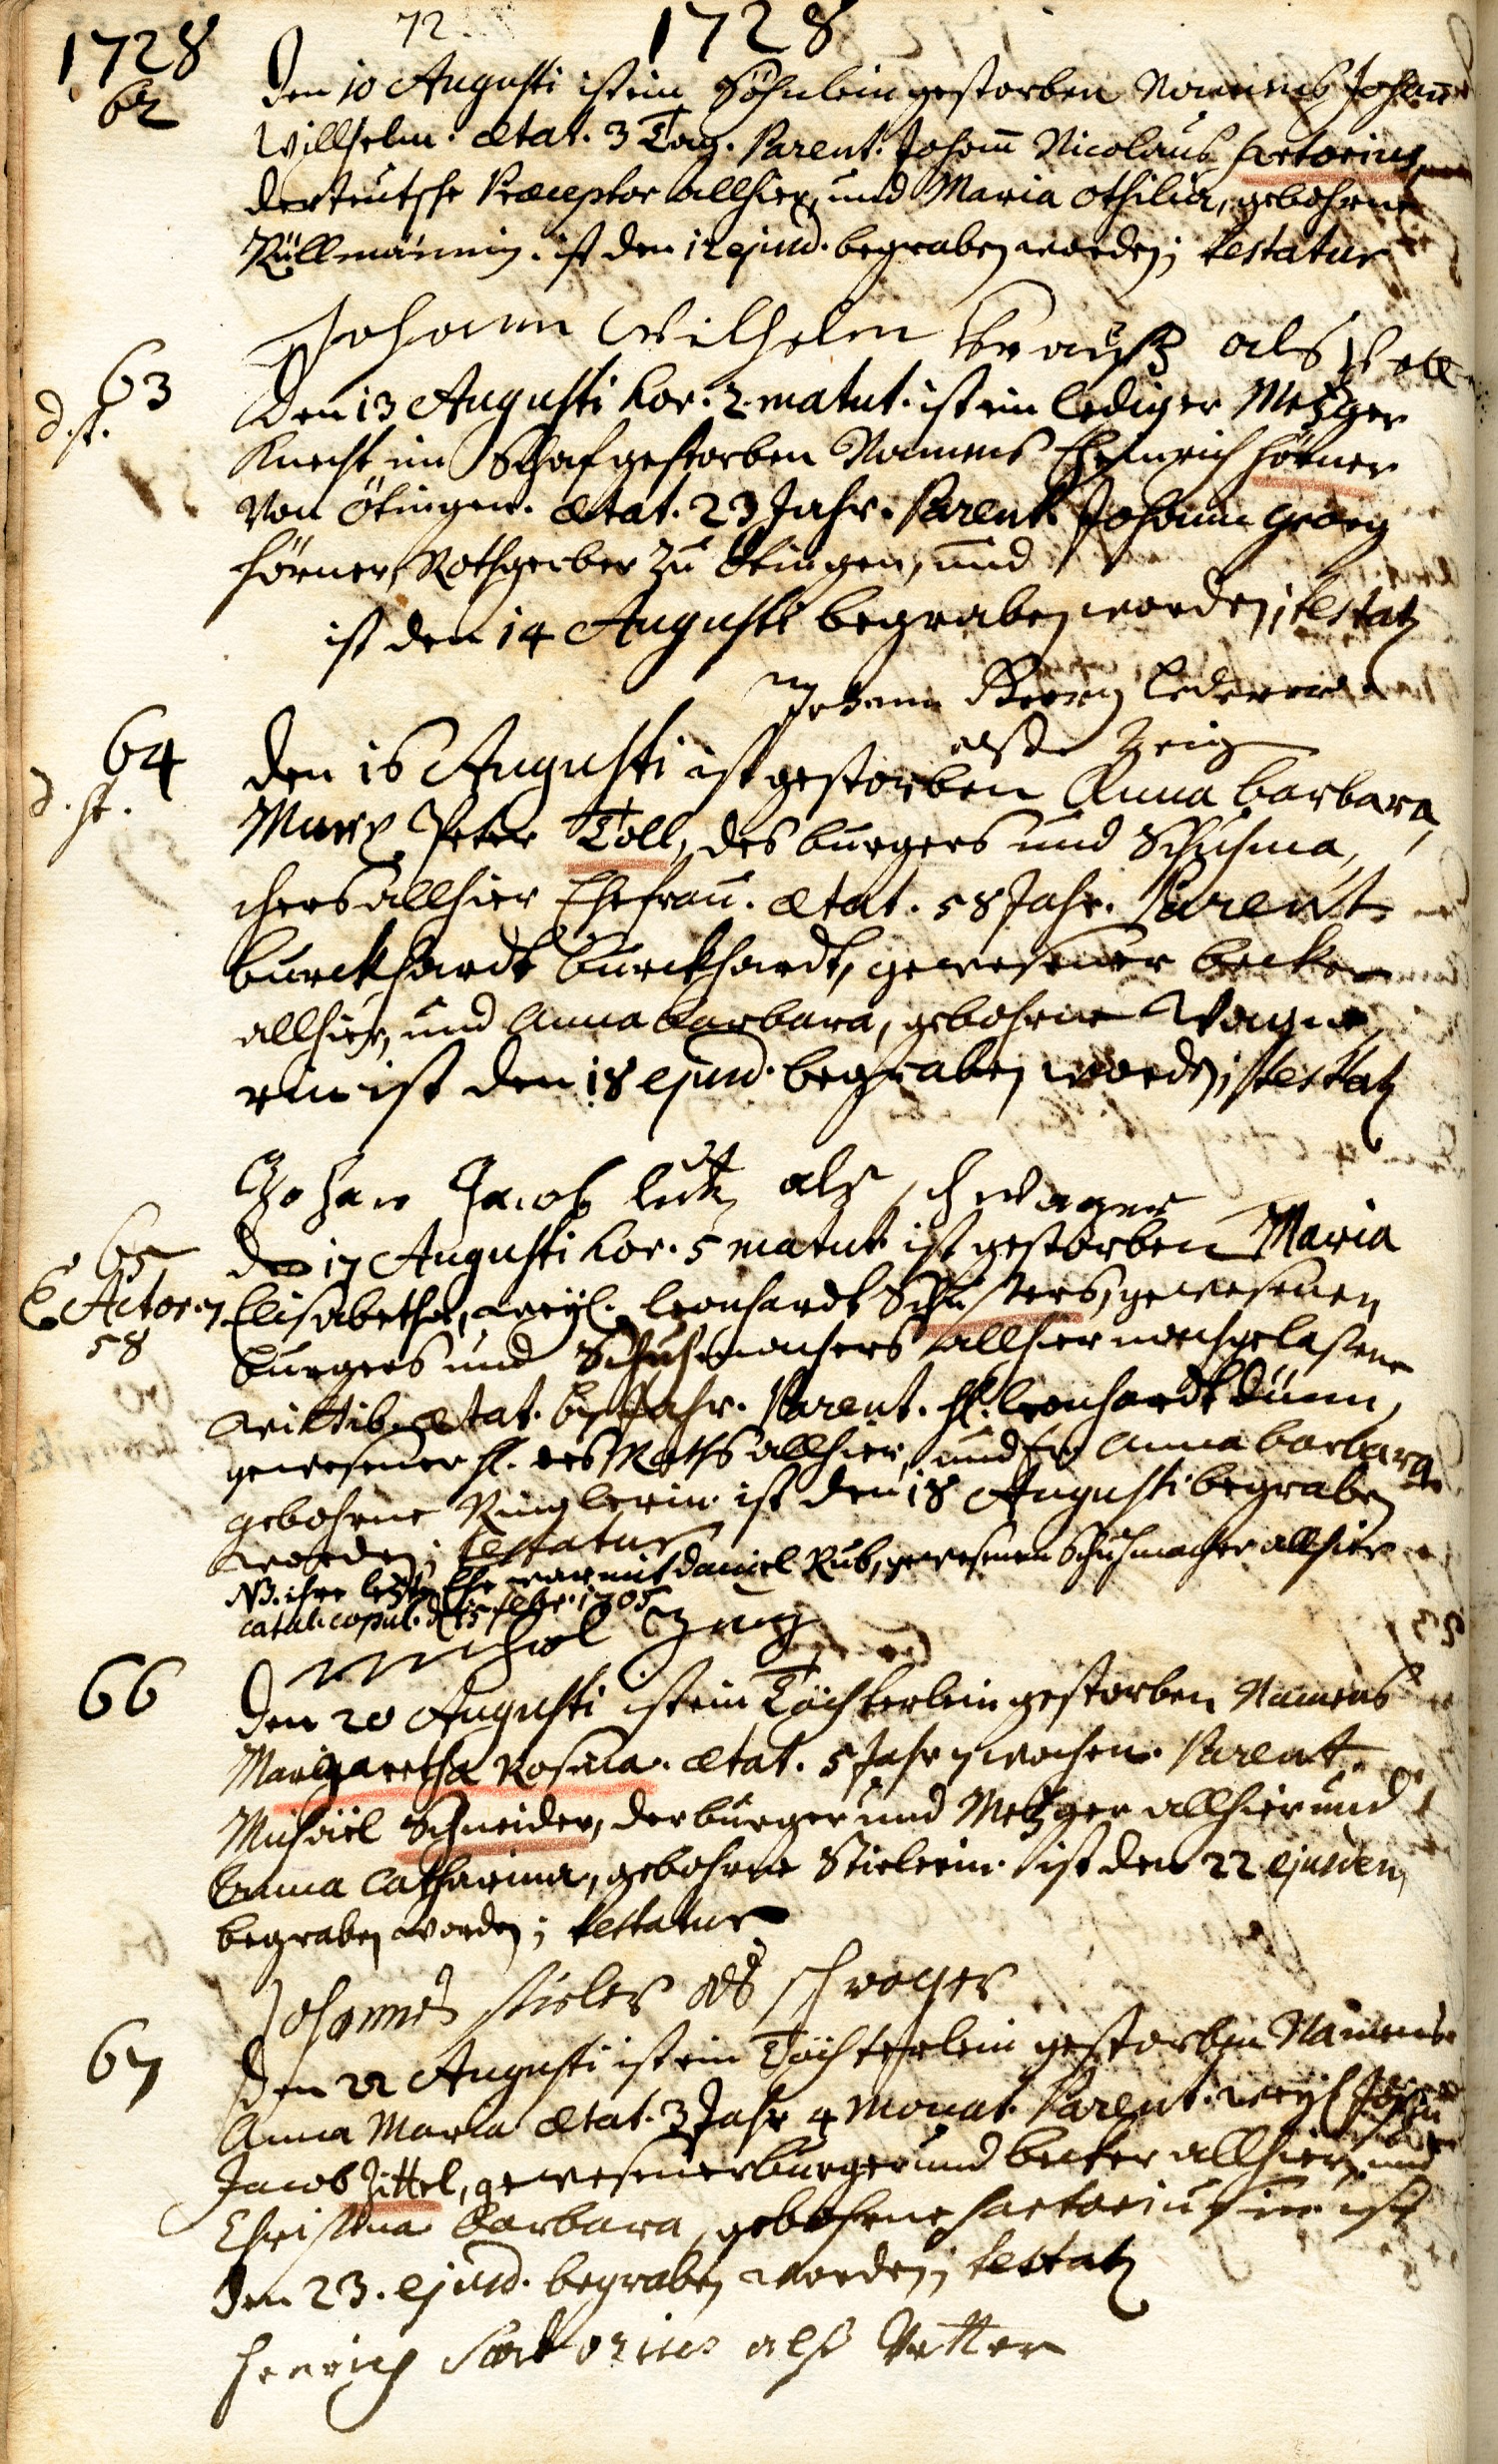 72
1728 1728
62
Den 10 Augusti ist ein Söhnlein gestorben Namens Johann
Willhelm. ætat. 3 Tag. Parent. Johann Nicolaus Sartorius,
der teutsche Præceptor allhier, und Maria Othilia, gebohrne
Rüllmännin. ist den 12 ejusd. begraben worden; testatur
Johann Wilhelm Krauß als
63
d. st.
Den 13 Augusti hor. 2. matut. ist ein lediger Metzger
Knecht im Schaf gestorben Namens Heinrich Hörner
von Ötingen. ætat. 23 Jahr. Parent. Johann Georg
Hörner, Rothgerber zu Ötingen, und
ist den 14 Augusti begraben worden; testatur
Johann Georg Lederer
alß Zeig
64
d. st.
Den 16 Augusti ist gestorben Anna Barbara,
Marx Peter Toll, des burgers und Schuhma,
chers allhier Ehefrau. ætat. 58 Jahr. Parent.
Burckhardt Burckhardt, gewesener becker
allhier, und Anna Barbara, gebohrne Wagne,
rin ist den 18 ejusd. begraben worden; testatur
Johan Jacob als schwager
65
E Actor. 7
58
Den 17 Augusti hor. 5 matut. ist gestorben Maria
Elisabetha, weyl. Leonhardt Schusters, gewesenen
burgers und Schuhmachers allhier nachgelaßene
Wittib. ætat. 67 Jahr. Parent. H. Leonhardt Dünn,
gewesener H. des Raths allhier, und Fr. Anna Barbara
gebohrne Ringlerin ist den 18 Augusti begraben
worden; testatur
NB. ihre letzte Ehe war mit Daniel Rub, gewesenen Schuhmacher allhier
catal. copul. d. 15 Febr. 1705
Michel Zeug
66
Den 20 Augusti ist ein Töchterlein gestorben Namens
Margaretha Rosina. ætat. 5 Jahr 7 wochen. Parent.
Michäel Schneider, der burger und Metzger allhier und
Anna Catharina, gebohrne Stielerin. ist den 22 ejusdem
begraben worden; testatur
Johannes stieler als schwager
67
Den 22 Augusti ist ein Töchterlein gestorben Namens
Anna Maria ætat. 3 Jahr 4 Monat. Parent. weyl. Johann
Jacob Zittel, gewesener burger und becker allhier, und
Christina Barbara, gebohrne Sartoriusin ist
den 23. ejusd. begraben worden; testatur
Henrich Sartorius alß Vetter